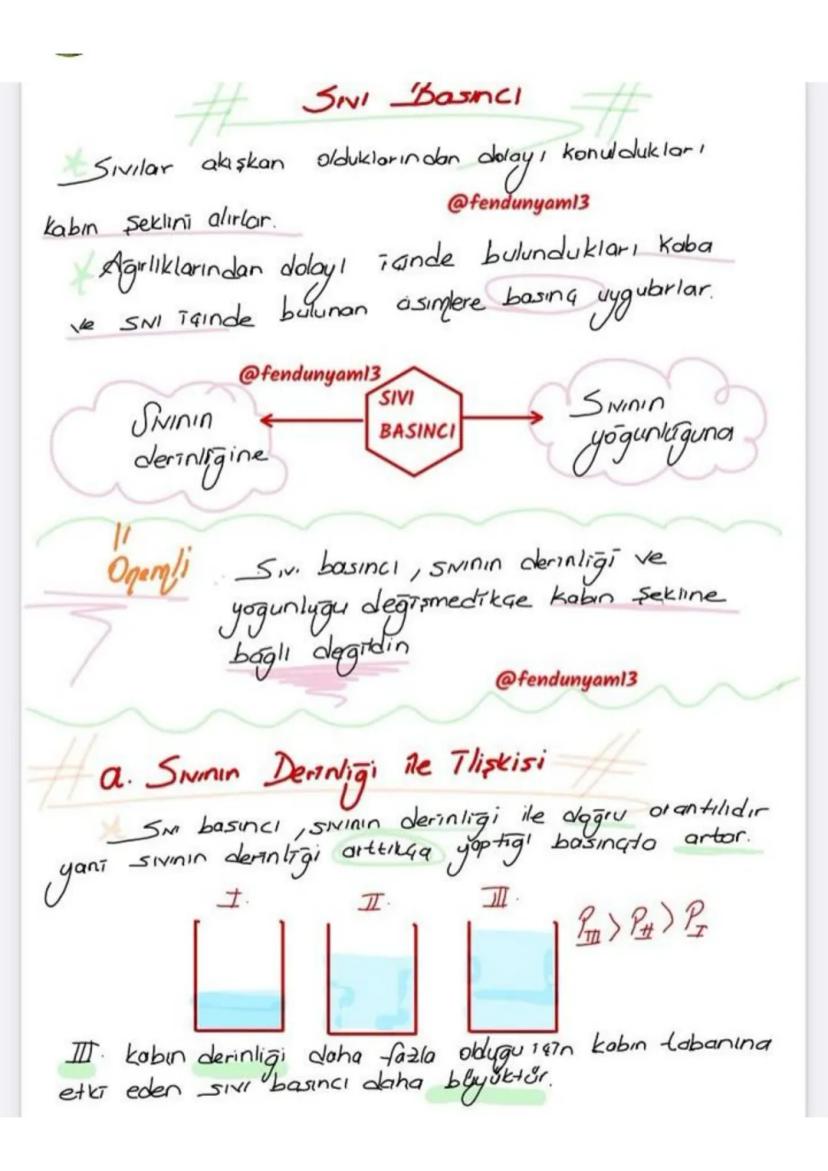 Sıvı Basıncı
Sıvılar akışkan olduklarından dolayı konuldukları
@fendunyam13
kabın şeklini alırlar.
Ağırlıklarından dolayı içinde bulundukları kaba
ve sıvı içinde bulunan cisimlere basınç uygularlar.
@fendunyam13
Sıvının
derinliğine
SIVI
BASINCI
Sıvının
yoğunluğuna
Önemli
Sıvı basıncı, sıvının derinliği ve
yoğunluğu değişmedikçe kabın şekline
bağlı değildir
@fendunyam13
a. Sıvının Derinliği ile İlişkisi
Sıvı basıncı, sıvının derinliği ile doğru orantılıdır
yani sıvının derinliği arttıkça yaptığı basınçta artar.
I. II. III.
P_III > P_II > P_I
III. kabın derinliği daha fazla olduğu için kabın tabanına
etki eden sıvı basıncı daha büyüktür.